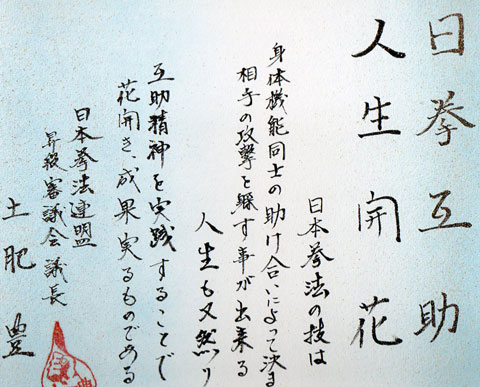 日拳互助
人生開花
日本拳法の技は
身体機能同士の助け合いによって決まる
相手の攻撃を躱す事が出来る
人生も又然り
互助精神を実践することで
花開き、成果実るものである
日本拳法連盟
昇級審議会議長
土肥豊